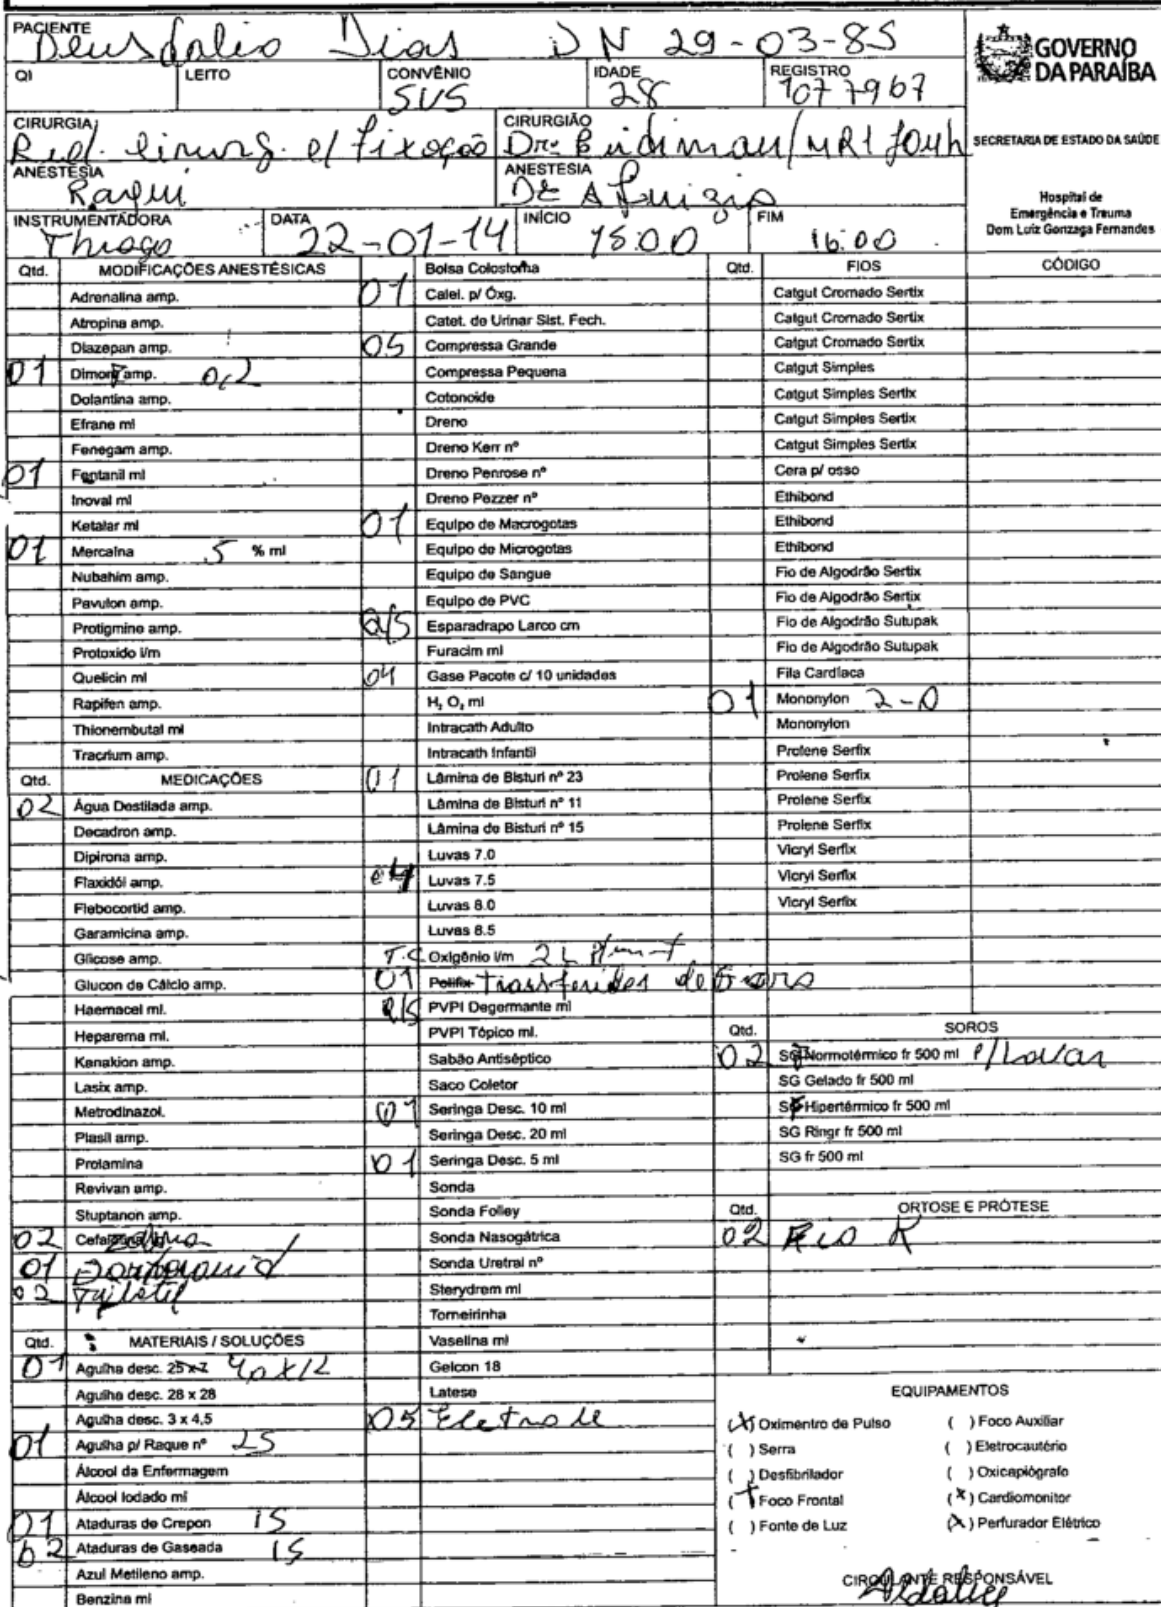 PACIENTE
Deusdalio Dias DN 29-03-85
GOVERNO
DA PARAÍBA
QI LEITO CONVÊNIO IDADE REGISTRO
SUS 28 1077967
CIRURGIA CIRURGIÃO
SECRETARIA DE ESTADO DA SAÚDE
Red. cirurg. c/ fixação Dr.
ANESTESIA ANESTESIA
Raqui
Hospital de
Emergência e Trauma
Dom Luiz Gonzaga Fernandes
INSTRUMENTADORA DATA INÍCIO FIM
Thiago 22-01-14 15:00 16:00
Qtd. MODIFICAÇÕES ANESTÉSICAS
Adrenalina amp.
Atropina amp.
Diazepan amp.
01 Dimorf amp. 0,2
Dolantina amp.
Efrane ml
Fenegam amp.
01 Fentanil ml
Inoval ml
Ketalar ml
01 Mercaina 5 % ml
Nubahim amp.
Pavulon amp.
Protigmine amp.
Protoxido l/m
Quelicin ml
Rapifen amp.
Thionembutal ml
Tracrium amp.
Qtd. MEDICAÇÕES
02 Água Destilada amp.
Decadron amp.
Dipirona amp.
Flaxidól amp.
Flebocortid amp.
Garamicina amp.
Glicose amp.
Glucon de Cálcio amp.
Haemacel ml.
Heparema ml.
Kanakion amp.
Lasix amp.
Metrodinazol.
Plasil amp.
Prolamina
Revivan amp.
Stuptanon amp.
02 Cefa zolina
01
02 Tilatil
Qtd. MATERIAIS / SOLUÇÕES
01 Agulha desc. 25 x 7 40x12
Agulha desc. 28 x 28
Agulha desc. 3 x 4,5
01 Agulha p/ Raque nº 25
Álcool da Enfermagem
Álcool Iodado ml
01 Ataduras de Crepon 15
02 Ataduras de Gaseada 15
Azul Metileno amp.
Benzina ml
Bolsa Colostoma
01 Catel. p/ Óxg.
Catet. de Urinar Sist. Fech.
05 Compressa Grande
Compressa Pequena
Cotonoide
Dreno
Dreno Kerr nº
Dreno Penrose nº
Dreno Pezzer nº
01 Equipo de Macrogotas
Equipo de Microgotas
Equipo de Sangue
Equipo de PVC
Q/S Esparadrapo Larco cm
Furacim ml
04 Gase Pacote c/ 10 unidades
H₂ O₂ ml
Intracath Adulto
Intracath Infantil
01 Lâmina de Bisturi nº 23
Lâmina de Bisturi nº 11
Lâmina de Bisturi nº 15
Luvas 7.0
Luvas 7.5
Luvas 8.0
Luvas 8.5
T.C Oxigênio l/m 2L
01 Polifix Transferidor de soro
Q/S PVPI Degermante ml
PVPI Tópico ml.
Sabão Antiséptico
Saco Coletor
01 Seringa Desc. 10 ml
Seringa Desc. 20 ml
01 Seringa Desc. 5 ml
Sonda
Sonda Folley
Sonda Nasogátrica
Sonda Uretral nº
Sterydrem ml
Torneirinha
Vaselina ml
Gelcon 18
Latese
05 Eletrode
Qtd. FIOS CÓDIGO
Catgut Cromado Sertix
Catgut Cromado Sertix
Catgut Cromado Sertix
Catgut Simples
Catgut Simples Sertix
Catgut Simples Sertix
Catgut Simples Sertix
Cera p/ osso
Ethibond
Ethibond
Ethibond
Fio de Algodrão Sertix
Fio de Algodrão Sertix
Fio de Algodrão Sutupak
Fio de Algodrão Sutupak
Fila Cardíaca
01 Mononylon 2-0
Mononylon
Prolene Serfix
Prolene Serfix
Prolene Serfix
Prolene Serfix
Vicryl Serfix
Vicryl Serfix
Vicryl Serfix
Qtd. SOROS
02 SF Normotérmico fr 500 ml p/ Lavar
SG Gelado fr 500 ml
SF Hipertérmico fr 500 ml
SG Ringr fr 500 ml
SG fr 500 ml
Qtd. ORTOSE E PRÓTESE
02 Fio K
EQUIPAMENTOS
(X) Oximentro de Pulso ( ) Foco Auxiliar
( ) Serra ( ) Eletrocautério
( ) Desfibrilador ( ) Oxicapiógrafo
( Foco Frontal (X) Cardiomonitor
( ) Fonte de Luz (X) Perfurador Elétrico
CIRCULANTE RESPONSÁVEL